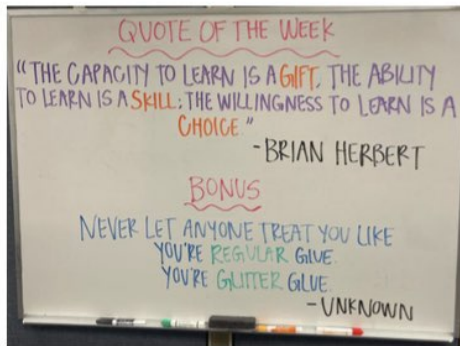 QUOTE OF THE WEEK
"THE CAPACITY TO LEARN IS A GIFT, THE ABILITY
TO LEARN IS A SKILL; THE WILLINGNESS TO LEARN IS A
CHOICE."
-BRIAN HERBERT
BONUS
NEVER LET ANYONE TREAT YOU LIKE
YOU'RE REGULAR GLUE.
YOU'RE GLITTER GLUE.
-UNKNOWN